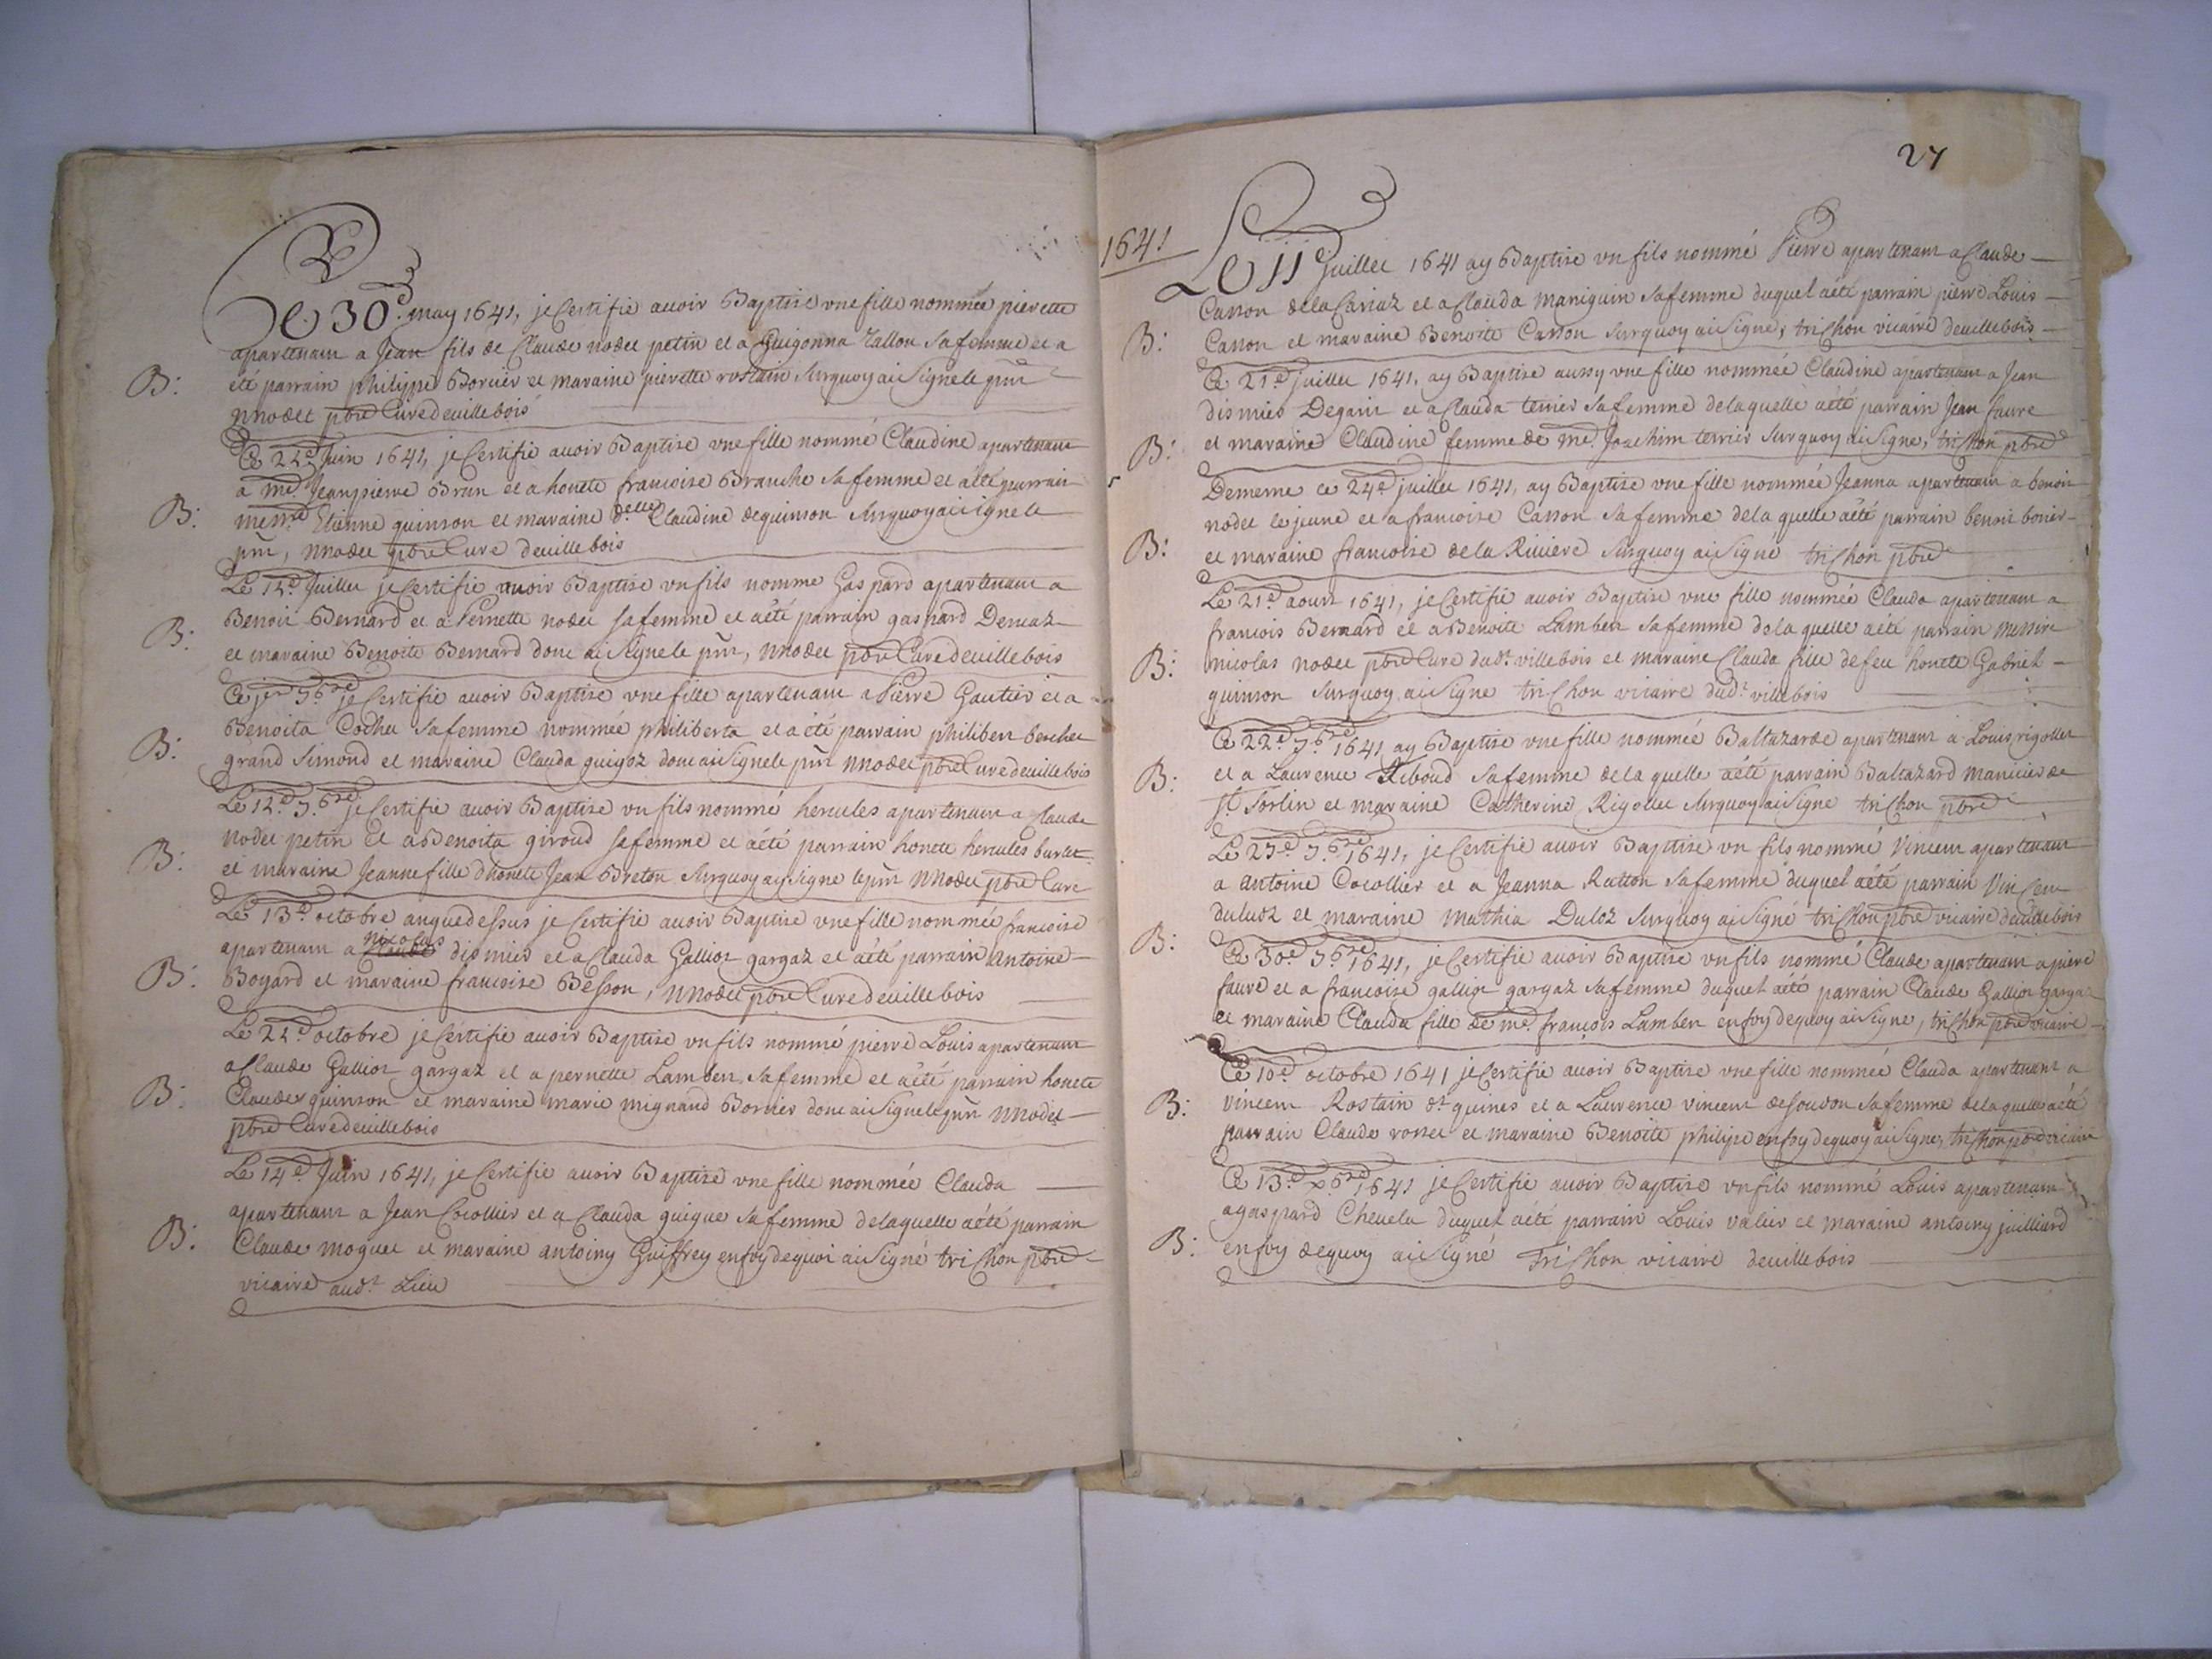 Le 30.e may 1641, je Certifie auoir Baptisé vne fille nommée pierette
apartenant a Jean fils de Claude nodet petin et a Guigonna Tallon sa femme et a
B:
été parrain philippe Borvier et maraine pierette rostain surquoy ai Signé le pnt
nnodet pbre Curé de uillebois
Ce 22.e Juin 1641, je Certifie auoir Baptisé vne fille nommé Claudine apartenant
a me. Jean pierre Brun et a honete francoise Branche sa femme et a été parrain
B:
messre. Etienne quinson et maraine d.elle Claudine de quinson surquoy ai signé le
pnt, nnodet pbre Curé de uillebois
Le 12.e Juillet je Certifie auoir Baptisé vn fils nommé Gaspard apartenant a
B:
Benoit Bernard et a Pernette nodet sa femme et a été parrain gaspard
et maraine Benoite Bernard dont ai Signé le pnt, nnodet pbre Curé de uillebois
Ce jer 7.bre je Certifie auoir Baptisé vne fille apartenant a Pierre Gautier et a
B:
Benoita Cochu sa femme nommée philiberta et a été parrain philibert berchet
grand Simond et maraine Clauda guigoz dont ai Signé le pnt nnodet pbre Curé de uillebois
Le 12.e 7.bre je Certifie auoir Baptisé vn fils nommé hercules apartenant a Claude
B:
nodet petin et a Benoita giroud sa femme et a été parrain honete hercules burlet
et maraine Jeanne fille d'honete Jean Breton surquoy ai Signé le pnt nnodet pbre Curé
Le 13.e octobre an que dessus je Certifie auoir Baptisé vne fille nommée francoise
nicolas
apartenant a Claude dis mies et a Clauda Galliot gargaz et a été parrain Antoine
B:
Boyard et maraine francoise Besson, nnodet pbre Curé de uillebois
Le 22.e octobre je Certifie auoir Baptisé vn fils nommé pierre Louis apartenant
a Claude Galliot gargaz et a pernette Lambert sa femme et a été parrain honete
B:
Claude quinson et maraine marie mignand Borvier dont ai Signé le pnt nnodet
pbre Curé de uillebois
Le 14.e Juin 1641, je Certifie auoir Baptisé vne fille nommée Clauda
apartenant a Jean Cocollier et a Clauda guigue sa femme de laquelle a été parrain
B:
Claude moguet et maraine antoiny Guiffrey en foy de quoi ai Signé trichon pbre
vicaire aud.t Lieu
27
1641
Le 11.e Juillet 1641 ay Baptisé vn fils nommé Pierre apartenant a Claude
Casson de la Cariaz et a Clauda maniguin sa femme duquel a été parrain pierre Louis
B:
Casson et maraine Benoite Casson surquoy ai Signé, trichon vicaire de uillebois
Ce 21.e juillet 1641, ay Baptisé aussy vne fille nommée Claudine apartenant a Jean
dis mies Degain et a Clauda terrier sa femme de laquelle a été parrain Jean faure
B:
et maraine Claudine femme de me. Joachim terrier surquoy ai Signé, trichon pbre
De meme ce 24.e juillet 1641, ay Baptisé vne fille nommée Jeanna apartenant a benoit
nodet le jeune et a francoise Casson sa femme de la quelle a été parrain benoit borier
B:
et maraine francoise de la Riviere surquoy ai Signé trichon pbre
Le 21.e aoust 1641, je Certifie auoir Baptisé vne fille nommée Clauda apartenant a
francois Bernard et a Benoite Lambert sa femme de la quelle a été parrain messire
B:
nicolas nodet pbre Curé dud.t villebois et maraine Clauda fille de feu honete Gabriel
quinson surquoy ai Signé trichon vicaire dud.t villebois
Ce 22.e 7.bre 1641 ay Baptisé vne fille nommée Baltazarde apartenant a Louis rigollet
B:
et a Laurence Riboud sa femme de la quelle a été parrain Baltazard manicier de
st. Sorlin et maraine Catherine Rigollet surquoy ai Signé trichon pbre
Le 27.e 7.bre 1641, je Certifie auoir Baptisé vn fils nommé Vincent apartenant
a antoine Cocollier et a Jeanna Ratton sa femme duquel a été parrain Vincent
B:
duluoz et maraine mathia Duloz surquoy ai Signé trichon pbre vicaire de uillebois
Ce 30.e 7.bre 1641, je Certifie auoir Baptisé vn fils nommé Claude apartenant a pierre
faure et a francoise galliot gargaz sa femme duquel a été parrain Claude Galliot gargaz
et maraine Clauda fille de me. francois Lambert en foy de quoy ai Signé, trichon pbre vicaire
Ce 10.e octobre 1641 je Certifie auoir Baptisé vne fille nommée Clauda apartenant a
B:
vincent Rostain dt. guines et a Laurence vincent de Soudon sa femme de laquelle a été
parrain Claude rosset et maraine Benoite philipe en foy de quoy ai Signé, trichon pbre vicaire
Ce 13.e xbre 1641 je Certifie auoir Baptisé vn fils nommé Louis apartenant
a gaspard Cheuela duquel a été parrain Louis valier et maraine antoiny juilliard
B:
en foy de quoy ai Signé Trichon vicaire de uillebois